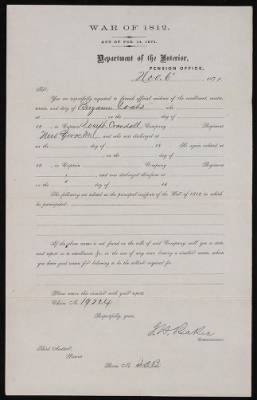 WAR OF 1812.
ACT OF FEB. 14, 1871.
Department of the Interior,
PENSION OFFICE,
Nov. 6 187
SIR:
You are respectfully requested to furnish official evidence of the enrollment, muster,
service, and duty of Benjamin who
at , on the day of
18 , in Captain Joseph Crandall Company, Regiment
New York Mil and who was discharged at
on the day of 18 . He again enlisted at
, on the day of
18 , in Captain Company, Regiment
, and was discharged therefrom at
on the day of 18
The following are stated as the principal services of the War of 1812 in which
he participated:
If the above name is not found on the rolls of said Company, will you so state
and report as to
you have good reason for believing to be the soldier inquired for.
Please return this circular with your report.
Claim No. 19224
Respectfully, yours,
J. H. Baker
Commissioner.
Third Auditor,
Present.
Room No.